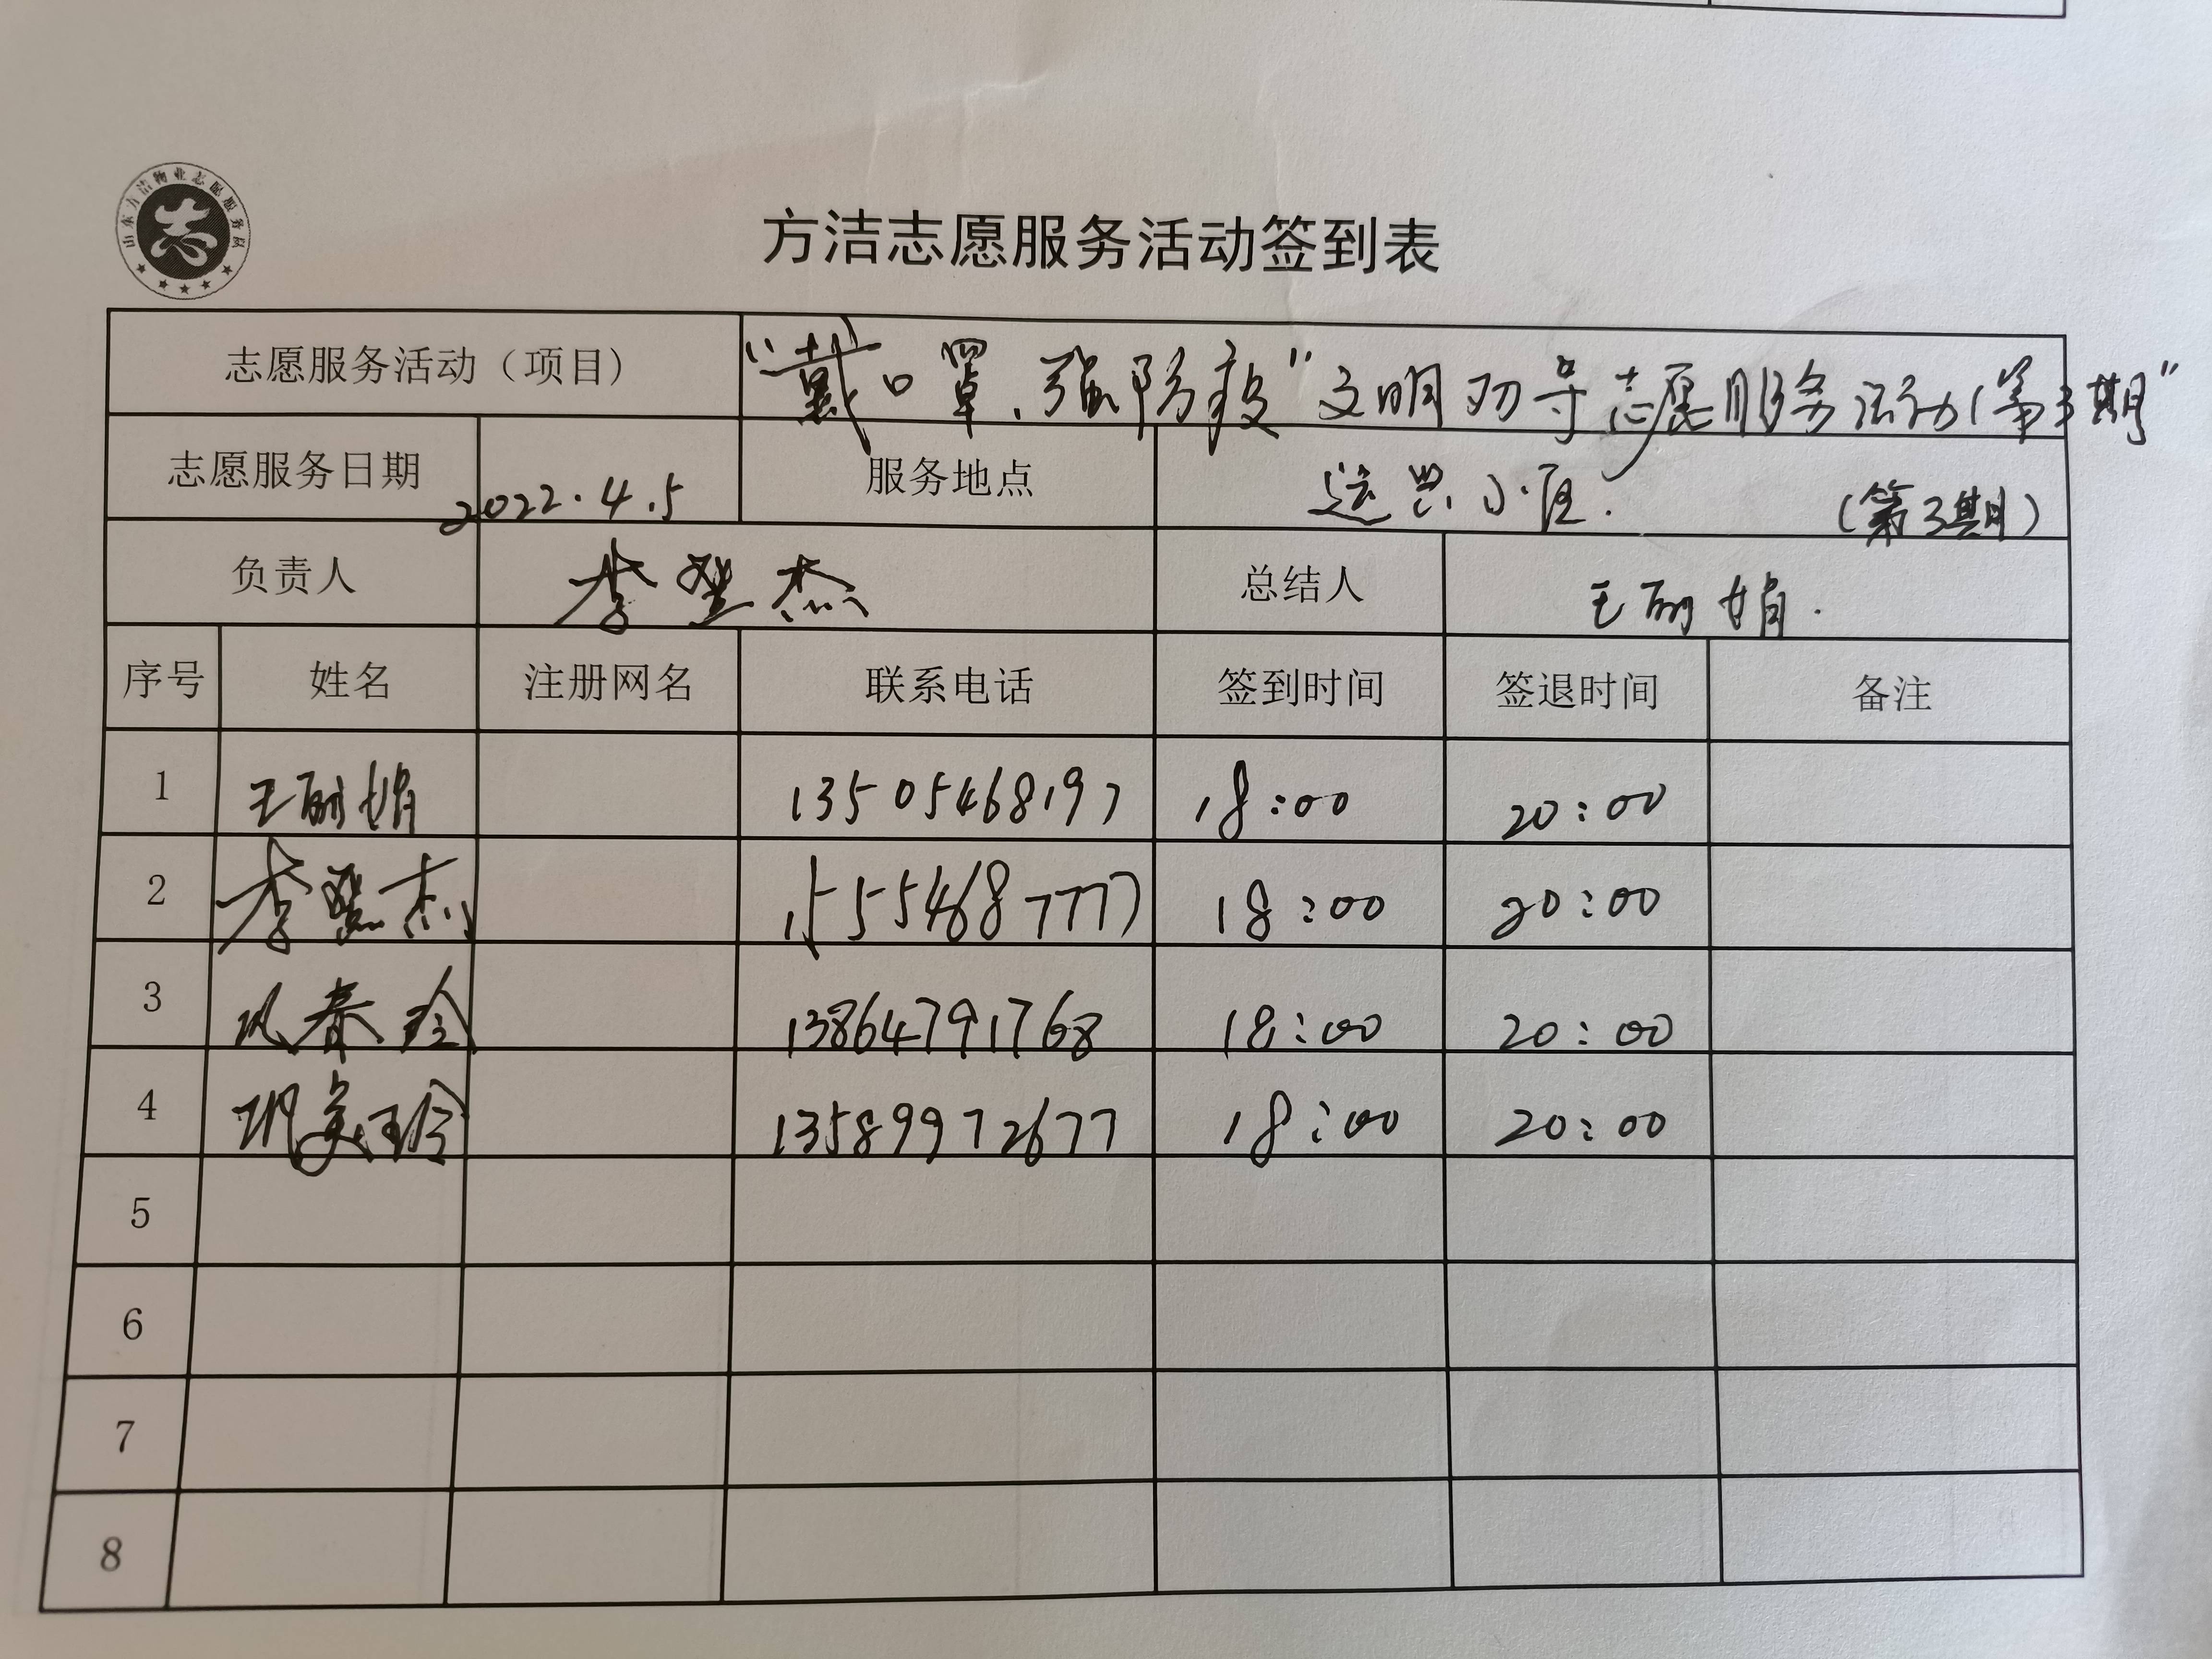 山东方洁物业志愿服务队
志
方洁志愿服务活动签到表
志愿服务活动（项目） "戴口罩、强防疫"文明劝导志愿服务活动（第3期"
志愿服务日期 2022.4.5 服务地点 运兴小区. （第3期）
负责人 李 杰 总结人 王丽娟.
序号 姓名 注册网名 联系电话 签到时间 签退时间 备注
1 王丽娟 13505468197 18:00 20:00
2 李 杰 15554687777 18:00 20:00
3 巩春玲 13864791768 18:00 20:00
4 巩美玲 13589972677 18:00 20:00
5
6
7
8